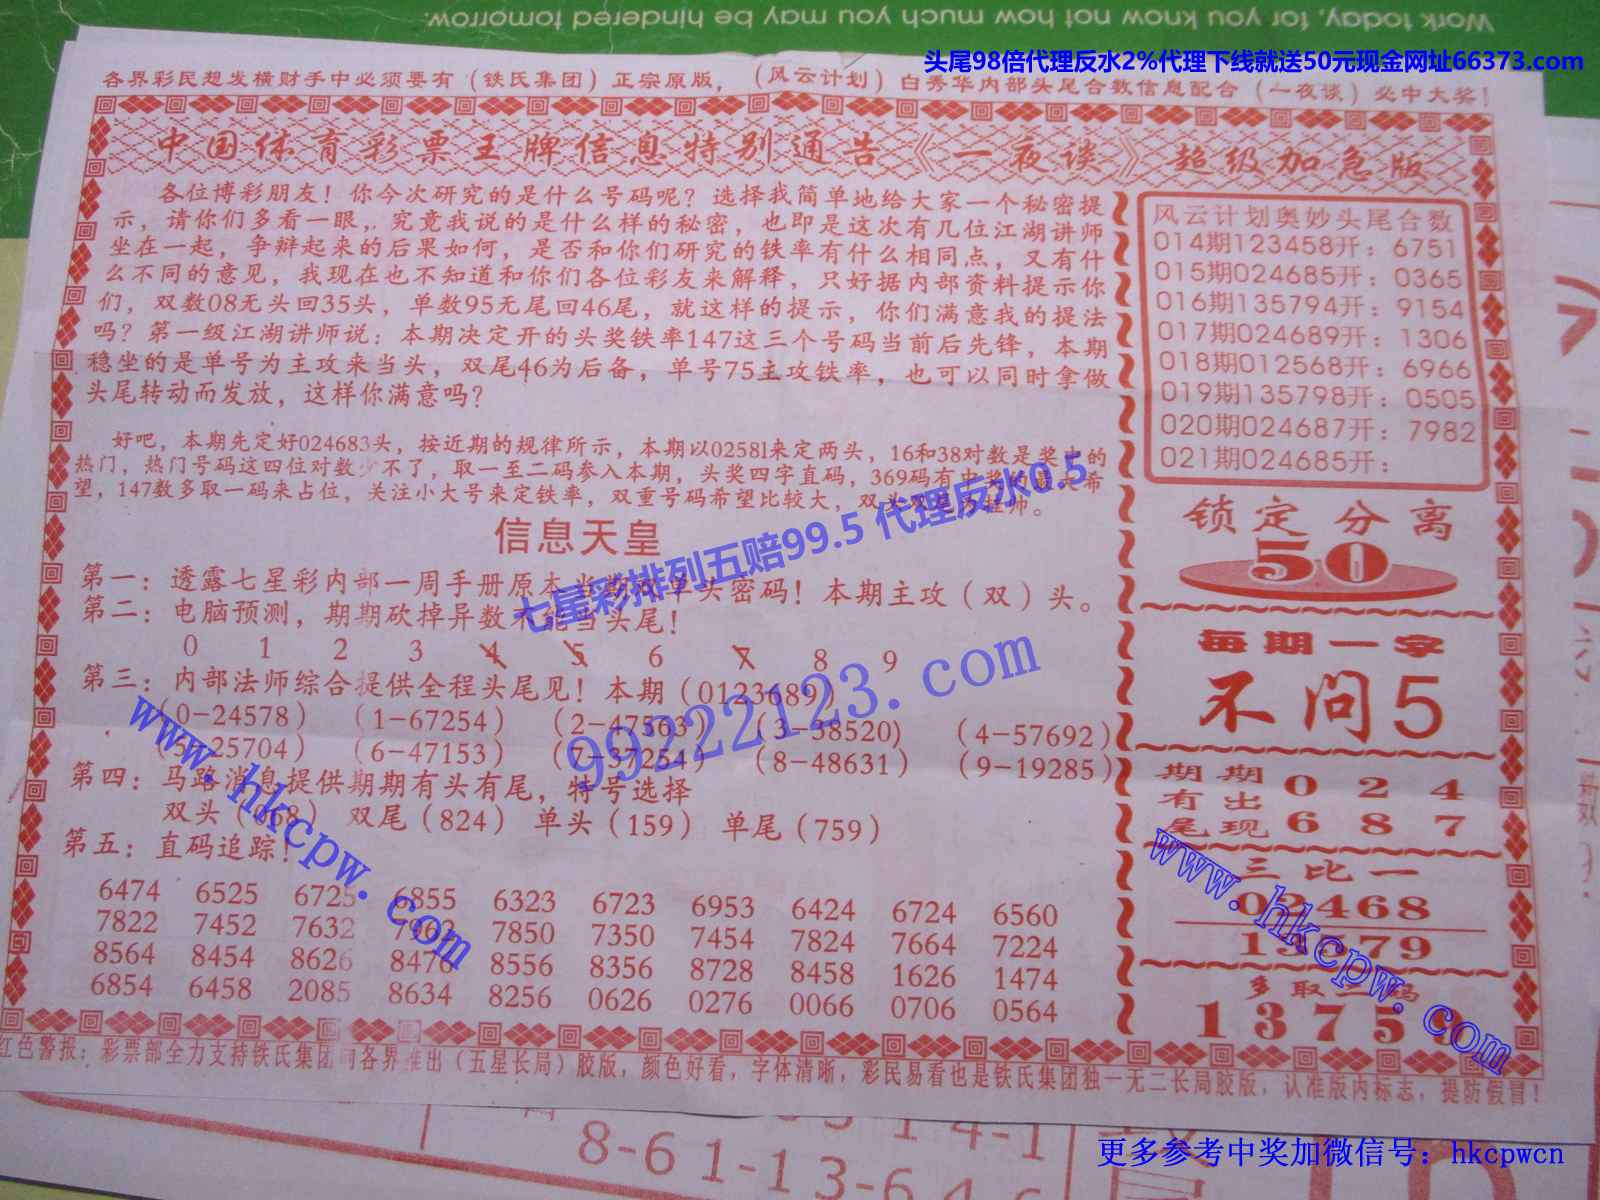 Work today, for you know not how much you may be hindered tomorrow.
头尾98倍代理反水2%代理下线就送50元现金网址66373.com
各界彩民想发横财手中必须要有（铁氏集团）正宗原版，（风云计划）白秀华内部头尾合数信息配合（一夜谈）必中大奖！
中国体育彩票王牌信息特别通告《一夜谈》超级加急版
各位博彩朋友！你今次研究的是什么号码呢？选择我简单地给大家一个秘密提
示，请你们多看一眼，究竟我说的是什么样的秘密，也即是这次有几位江湖讲师
坐在一起，争辩起来的后果如何，是否和你们研究的铁率有什么相同点，又有什
么不同的意见，我现在也不知道和你们各位彩友来解释，只好据内部资料提示你
们，双数08无头回35头，单数95无尾回46尾，就这样的提示，你们满意我的提法
吗？第一级江湖讲师说：本期决定开的头奖铁率147这三个号码当前后先锋，本期
稳坐的是单号为主攻来当头，双尾46为后备，单号75主攻铁率，也可以同时拿做
头尾转动而发放，这样你满意吗？
好吧，本期先定好024683头，按近期的规律所示，本期以02581来定两头，16和38对数是奖中的
热门，热门号码这四位对数少不了，取一至二码参入本期，头奖四字直码，369码有中奖的最大希
望，147数多取一码来占位，关注小大号来定铁率，双重号码希望比较大，双头双尾
信息天皇
第一：透露七星彩内部一周手册原本当期双单头密码！本期主攻（双）头。
第二：电脑预测，期期砍掉异数不能当头尾！
0 1 2 3 4 5 6 7 8 9
第三：内部法师综合提供全程头尾见！本期（0123689）
（0-24578）（1-67254）（2-47563）（3-58520）（4-57692）
（5-25704）（6-47153）（7-37254）（8-48631）（9-19285）
第四：马路消息提供期期有头有尾，特号选择
双头（068） 双尾（824） 单头（159） 单尾（759）
第五：直码追踪！
6474 6525 6725 6855 6323 6723 6953 6424 6724 6560
7822 7452 7632 7850 7350 7454 7824 7664 7224
8564 8454 8626 8476 8556 8356 8728 8458 1626 1474
6854 6458 2085 8634 8256 0626 0276 0066 0706 0564
风云计划奥妙头尾合数
014期123458开：6751
015期024685开：0365
016期135794开：9154
017期024689开：1306
018期012568开：6966
019期135798开：0505
020期024687开：7982
021期024685开：
锁定分离
50
每期一字
不问5
期期 0 2 4
有出
尾现 6 8 7
三比一
02468
13579
多取二码
1375
红色警报：彩票部全力支持铁氏集团向各界推出（五星长局）胶版，颜色好看，字体清晰，彩民易看也是铁氏集团独一无二长局胶版，认准版内标志，提防假冒！
七星彩排列五赔99.5 代理反水0.5
99222123.com
www.hkcpw.com
www.hkcpw.com
8-61-13-646
更多参考中奖加微信号：hkcpwcn